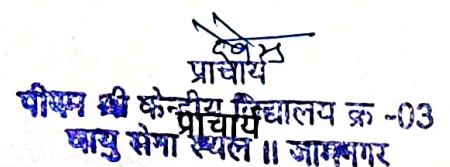 प्राचार्य
पीएम श्री केन्द्रीय विद्यालय क्र -03
प्राचार्य
वायु सेना स्थल || जामनगर